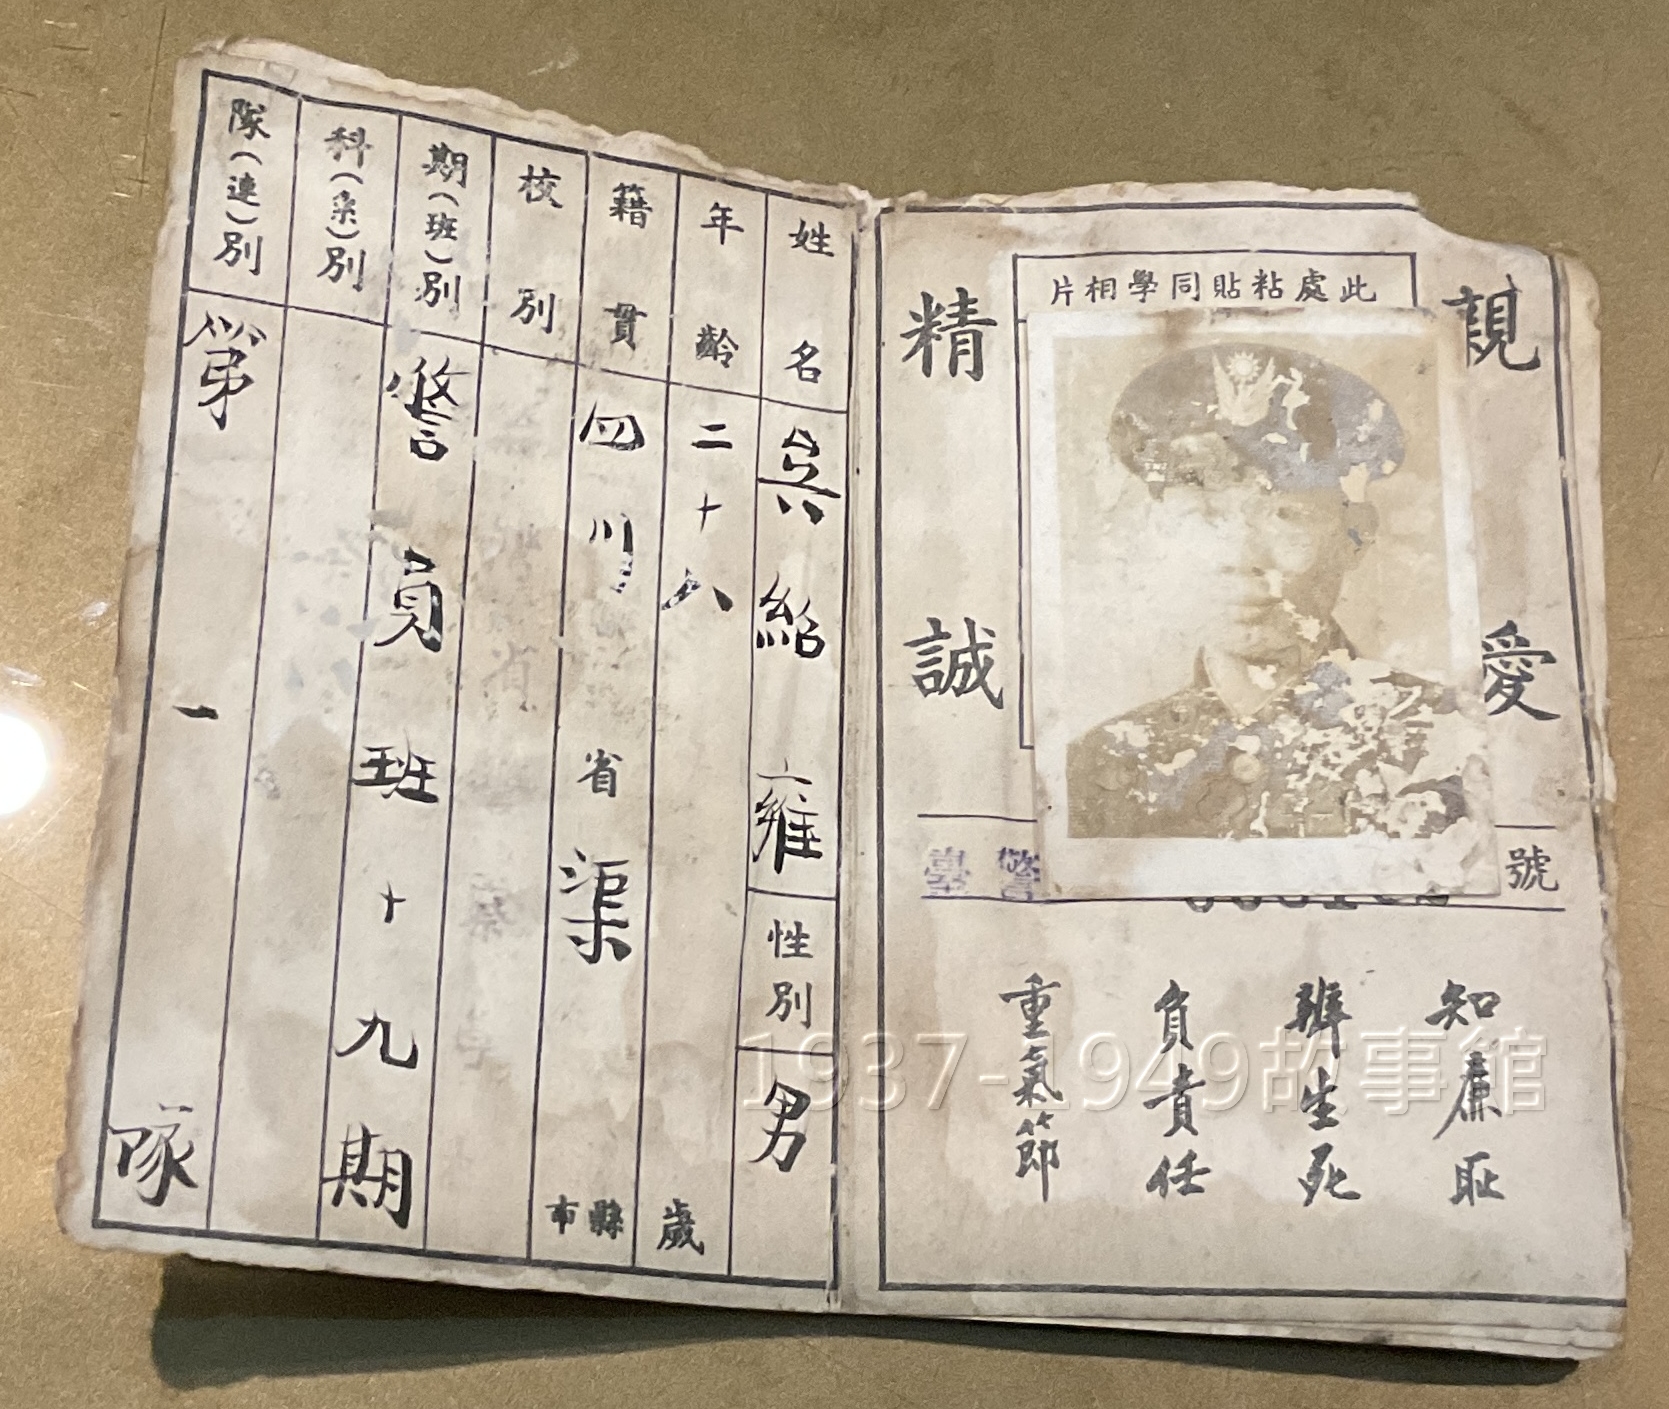 親愛
精誠
此處粘貼同學相片
號
警
臺
知廉恥
辨生死
負責任
重氣節
姓名
吳紹雍
性別
男
年齡
二十八
歲
籍貫
四川省渠
縣市
校別
期(班)別
警員班十九期
科(系)別
隊(連)別
第一隊
1937-1949故事館